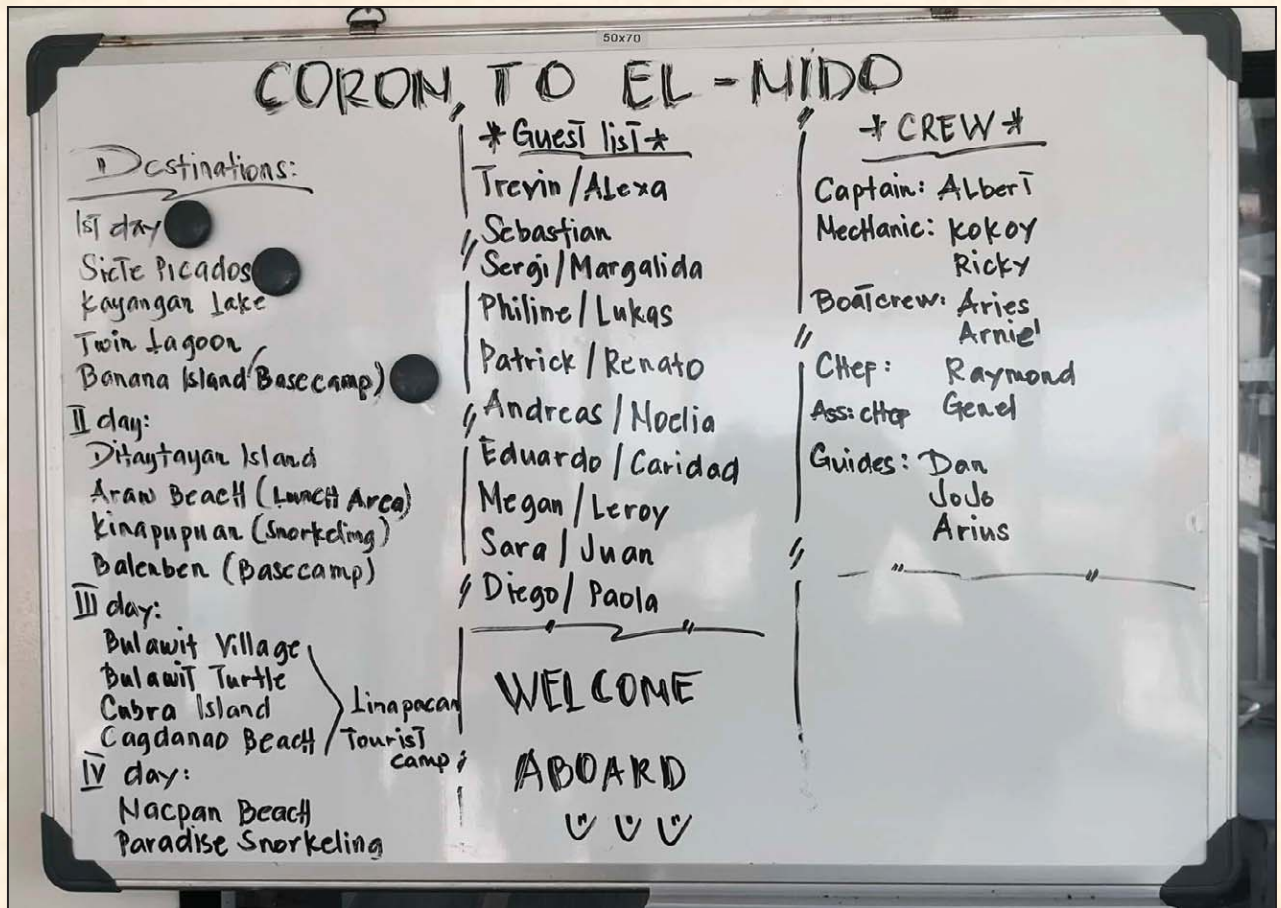 50x70
CORON, TO EL-NIDO
Destinations:
1st day
Siete Picados
Kayangan Lake
Twin Lagoon
Banana Island (Basecamp)
II day:
Ditaytayan Island
Araw Beach (Lunch Area)
Kinapupuan (Snorkeling)
Balenben (Basecamp)
III day:
Bulawit Village
Bulawit Turtle
Cabra Island
Cagdanao Beach
Linapacan
Tourist
camp
IV day:
Nacpan Beach
Paradise Snorkeling
*Guest list*
Trevin/Alexa
Sebastian
Sergi/Margalida
Philine/Lukas
Patrick/Renato
Andreas/Noelia
Eduardo/Caridad
Megan/Leroy
Sara/Juan
Diego/Paola
WELCOME
ABOARD
*CREW*
Captain: Albert
Mechanic: Kokoy
Ricky
Boatcrew: Aries
Arniel
Chep: Raymond
Ass: chep Genel
Guides: Dan
JoJo
Arius